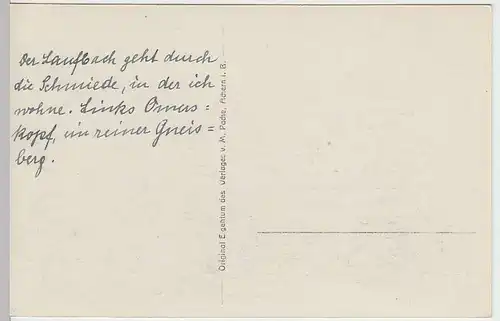 Der Laufbach geht durch
die Schmiede, in der ich
wohne. Links Omers=
kopf, ein reiner Gneis=
berg.
Original Eigentum des Verlages v. M. Pache, Achern i. B.